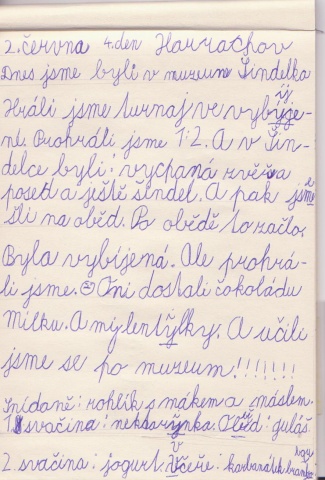 2. června 4. den Harrachov
Dnes jsme byli v muzeum Šindelka
Hráli jsme turnaj ve vybíje-
ní. Prohráli jsme 1:2. A v Šin-
delce byli: vychaná zvěřa
posed a ještě šindel. A pak jsme
šli na oběd. Po obědě to začlo.
Byla vybíjená. Ale prohrá-
li jsme. Oni dostali čokoládu
Milku. A my lentylky. A učili
jsme se po muzeum!!!!!!!
Snídaně: rohlík s mákem a máslem.
1. svačina: nektarynka. Oběd: guláš
2. svačina: jogurt. Večeře: karbanátek brambory